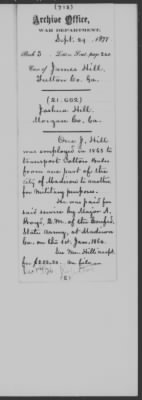 (718)
Archive Office,
WAR DEPARTMENT,
Sept. 29, 1877
Book 3 Letters Sent, page 240
Case of James Hill,
Fulton Co. Ga.
(21.652)
Joshua Hill,
Morgan Co. Ga.
One J. Hill
was employed in 1863 to
transport Cotton Bales
from one part of the
City of Madison to another
for Military purposes.
He was paid for
said service by Major A.
Q.M. of the Confed.
States Army, at Madison
Ga. on the 1st Jan. 1864.
See Mr. Hill's rcpt.
for $222.50. on file
(2)